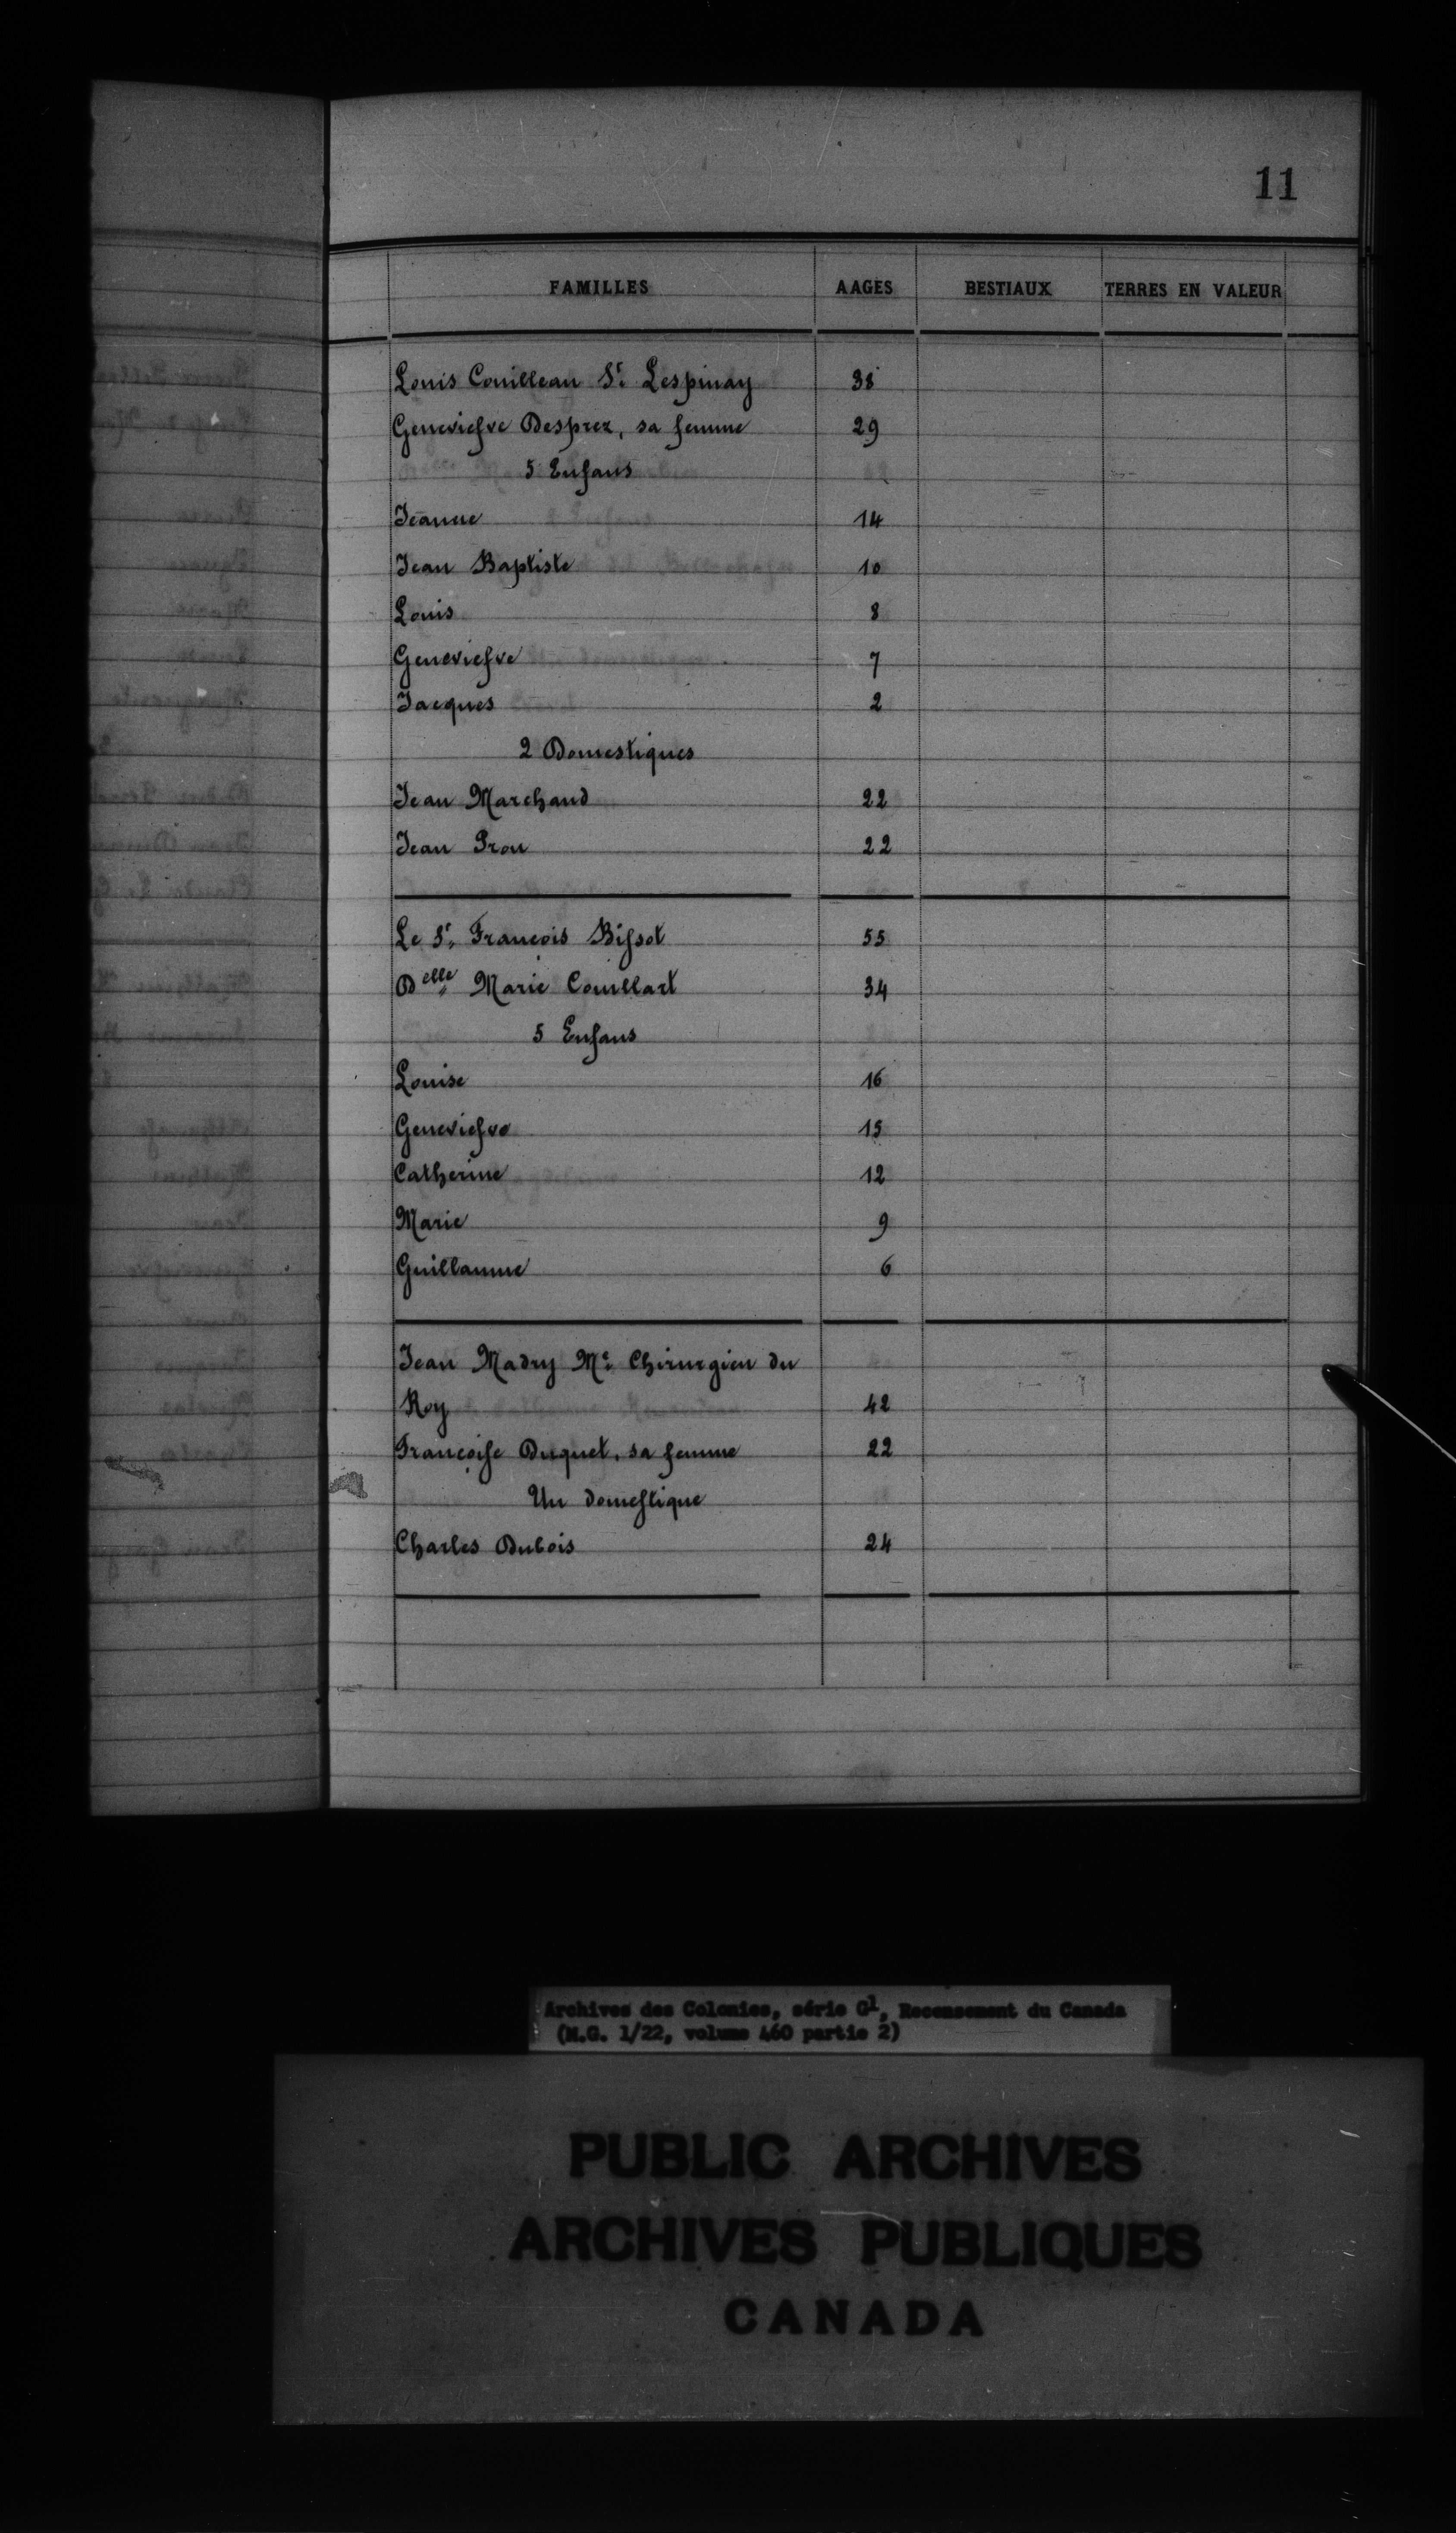 11
FAMILLES AAGES BESTIAUX TERRES EN VALEUR
Louis Couilleau Sr. Lespinay 38
Geneviefve Desprez, sa femme 29
5 Enfans
Jeanne 14
Jean Baptiste 10
Louis 8
Geneviefve 7
Jacques 2
2 Domestiques
Jean Marchand 22
Jean Prou 22
Le Sr. François Bissot 55
Delle Marie Couillart 34
5 Enfans
Louise 16
Geneviefve 15
Catherine 12
Marie 9
Guillaume 6
Jean Madry Me Chirurgien du
Roy 42
Françoise Duquet, sa femme 22
Un domestique
Charles Dubois 24
Archives des Colonies, série G1, Recensement du Canada
(M.G. 1/22, volume 460 partie 2)
PUBLIC ARCHIVES
ARCHIVES PUBLIQUES
CANADA